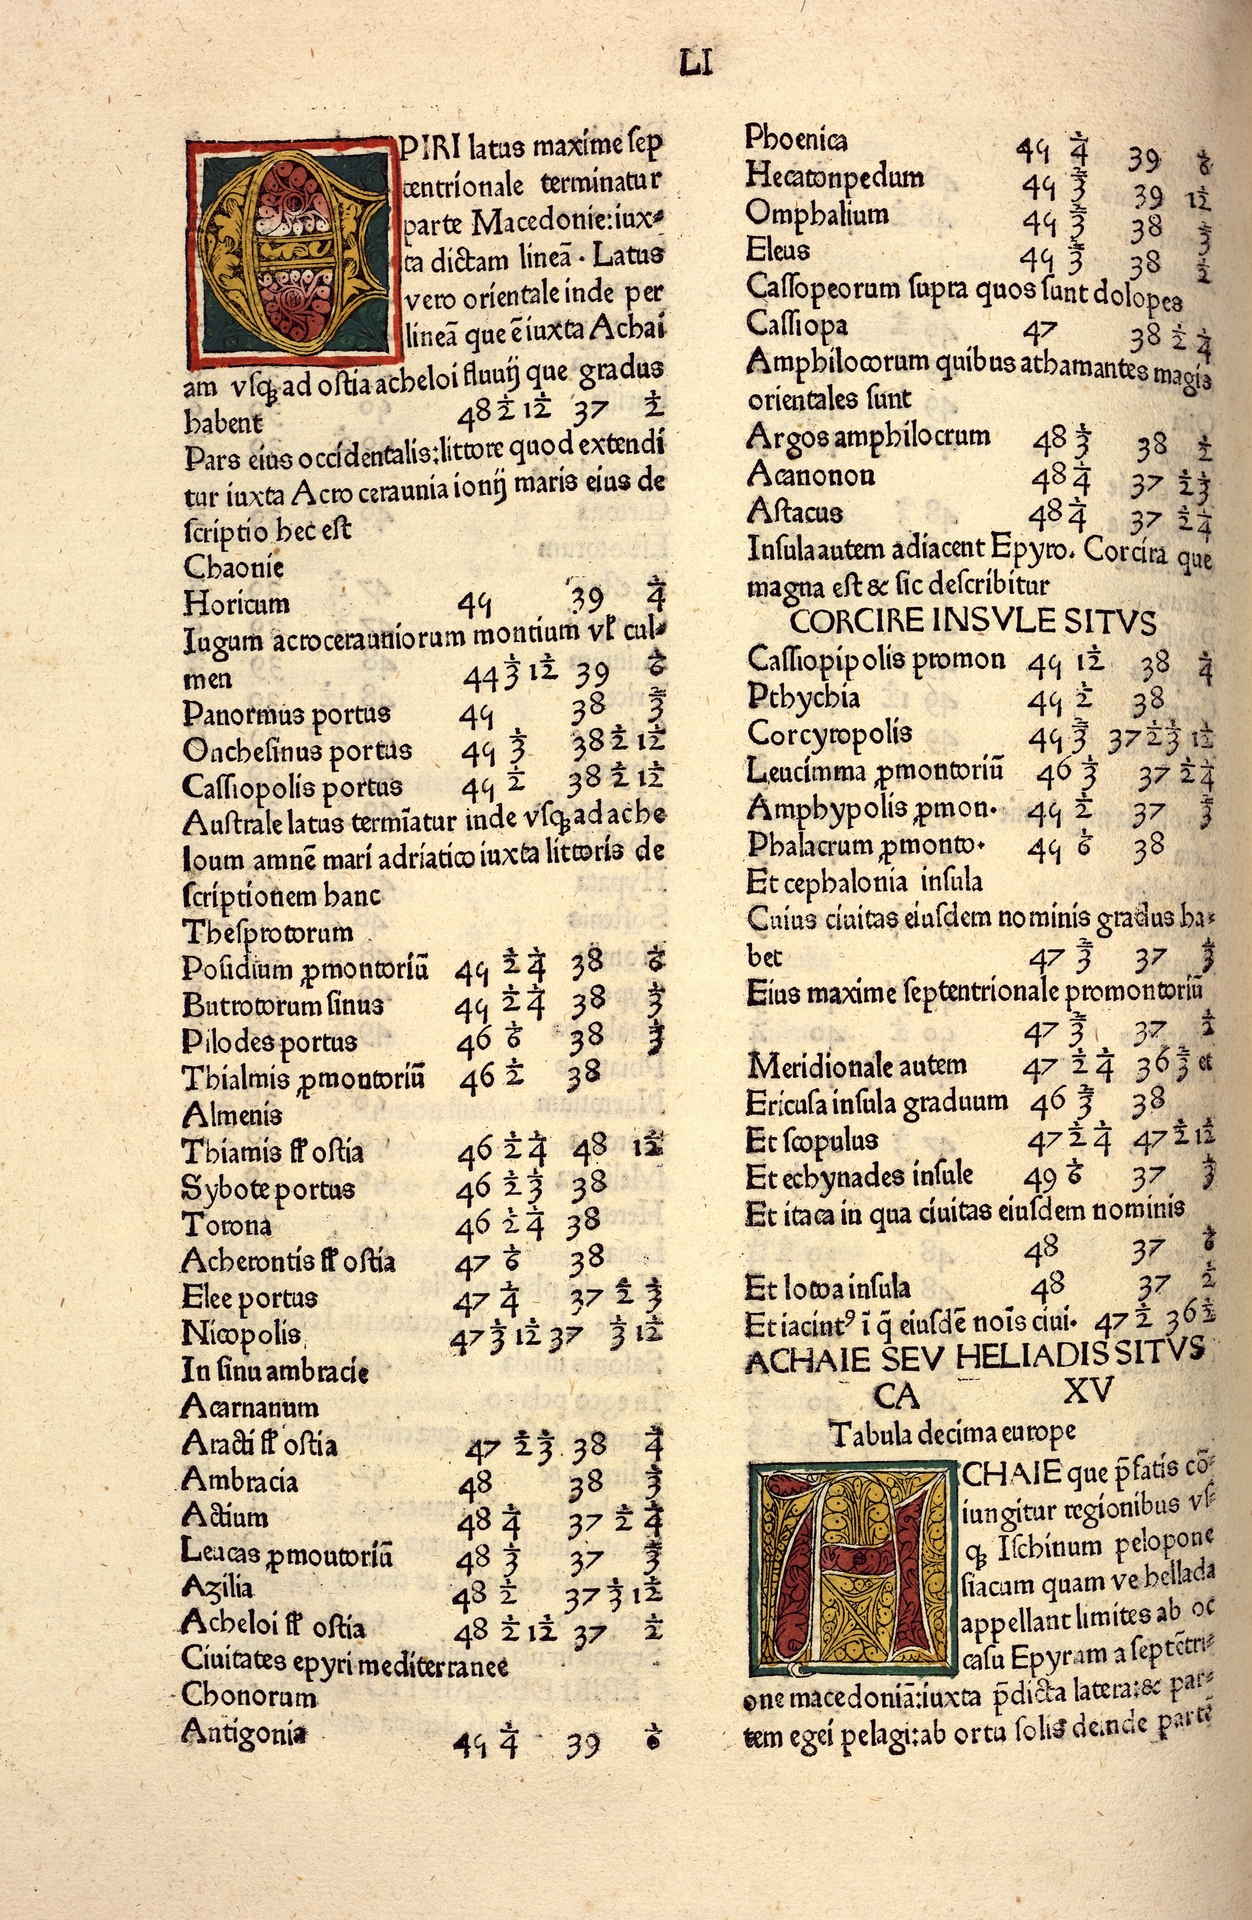 LI
EPIRI latus maxime sep
tentrionale terminatur
parte Macedonie:iux⸗
ta dictam lineā. Latus
vero orientale inde per
lineā que ē iuxta Achai
am vſꝗ ad oſtia acheloi fluuij que gradus
habent 48 ½ 1½ 37 ½
Pars eius occidentalis:littore quod extendi
tur iuxta Acro ceraunia ionij maris eius de
ſcriptio hec eſt
Chaonie
Horicum 4ꝗ 39 ¼
Iugum acrocerauniorum montium vƚ cul⸗
men 44 ⅓ 1½ 39 ⅙
Panormus portus 4ꝗ 38 ⅔
Oncheſinus portus 4ꝗ ⅓ 38 ½ 1½
Caſſiopolis portus 4ꝗ ½ 38 ½ 1½
Auſtrale latus termīatur inde vſꝗ ad ache
loum amnē mari adriatico iuxta littoris de
ſcriptionem hanc
Theſprotorum
Poſidium ꝓmontoriū 4ꝗ ½ ¼ 38 ⅙
Butrotorum ſinus 4ꝗ ½ ¼ 38 ⅓
Pilodes portus 46 ⅙ 38 ⅓
Thialmis ꝓmontoriū 46 ½ 38
Almenis
Thiamis ﬄ oſtia 46 ½ ¼ 48 1½
Sybote portus 46 ½ ⅓ 38
Torona 46 ½ ¼ 38
Acherontis ﬄ oſtia 47 ⅙ 38
Elee portus 47 ¼ 37 ½ ⅓
Nicopolis 47 ⅓ 1½ 37 ⅓ 1½
In ſinu ambracie
Acarnanum
Aracti ﬄ oſtia 47 ½ ⅓ 38 ¼
Ambracia 48 38 ⅓
Actium 48 ¼ 37 ½ ¼
Leucas ꝓmoutoriū 48 ⅓ 37 ⅔
Azilia 48 ½ 37 ⅓ 1½
Acheloi ﬄ oſtia 48 ½ 1½ 37 ½
Ciuitates epyri mediterranee
Chonorum
Antigonia 4ꝗ ¼ 39 ⅙
Phoenica 4ꝗ ¼ 39 ⅙
Hecatonpedum 4ꝗ ⅔ 39 1½
Omphalium 4ꝗ ⅔ 38 ⅔
Eleus 4ꝗ ⅔ 38 ½
Caſſopeorum ſupra quos ſunt dolopes
Caſſiopa 47 38 ½ ¼
Amphilocorum quibus athamantes magis
orientales ſunt
Argos amphilocrum 48 ⅓ 38 ½
Acanonon 48 ¼ 37 ½ ⅓
Aſtacus 48 ¼ 37 ½ ¼
Inſula autem adiacent Epyro. Corcira que
magna eſt & ſic deſcribitur
CORCIRE INSVLE SITVS
Caſſiopipolis promon 4ꝗ 1½ 38 ¼
Pthychia 4ꝗ ½ 38
Corcyropolis 4ꝗ ⅔ 37 ½ ⅓ 1½
Leucimma ꝓmontoriū 46 ⅓ 37 ½ ¼
Amphypolis ꝓmon. 4ꝗ ½ 37 ⅔
Phalacrum ꝓmonto. 4ꝗ ⅙ 38
Et cephalonia inſula
Cuius ciuitas eiuſdem nominis gradus ha⸗
bet 47 ⅔ 37 ⅓
Eius maxime ſeptentrionale promontoriū
47 ⅔ 37 ½
Meridionale autem 47 ½ ¼ 36 ⅔ et
Ericuſa inſula graduum 46 ⅔ 38
Et ſcopulus 47 ½ ¼ 47 ½ 1½
Et echynades inſule 49 ⅙ 37 ⅓
Et itaca in qua ciuitas eiuſdem nominis
48 37 ⅙
Et lotoa inſula 48 37 ½
Et iacintꝰ ī q̄ eiuſdē noīs ciui. 47 ½ 36 ½
ACHAIE SEV HELIADIS SITVS
CA XV
Tabula decima europe
ACHAIE que p̄fatis cō⸗
iungitur regionibus vſ⸗
ꝗ Iſchinum pelopone
ſiacum quam ve hellada
appellant limites ab oc
caſu Epyram a ſeptētri⸗
one macedoniā:iuxta p̄dicta latera:& par⸗
tem egei pelagi:ab ortu ſolis deinde partē